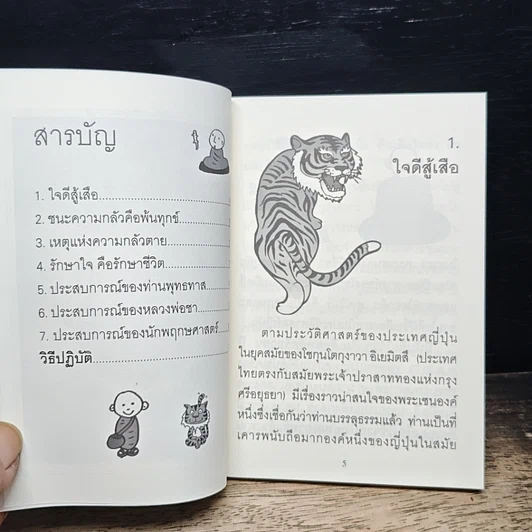 สารบัญ
1. ใจดีสู้เสือ
2. ชนะความกลัวคือพ้นทุกข์
3. เหตุแห่งความกลัวตาย
4. รักษาใจ คือรักษาชีวิต
5. ประสบการณ์ของท่านพุทธทาส
6. ประสบการณ์ของหลวงพ่อชา
7. ประสบการณ์ของนักพฤกษศาสตร์
วิธีปฏิบัติ
1.
ใจดีสู้เสือ
ตามประวัติศาสตร์ของประเทศญี่ปุ่น
ในยุคสมัยของโชกุนโตกุงาวา อิเยมิตสึ (ประเทศ
ไทยตรงกับสมัยพระเจ้าปราสาททองแห่งกรุง
ศรีอยุธยา) มีเรื่องราวน่าสนใจของพระเซนองค์
หนึ่งซึ่งเชื่อกันว่าท่านบรรลุธรรมแล้ว ท่านเป็นที่
เคารพนับถือมากองค์หนึ่งของญี่ปุ่นในสมัย
5